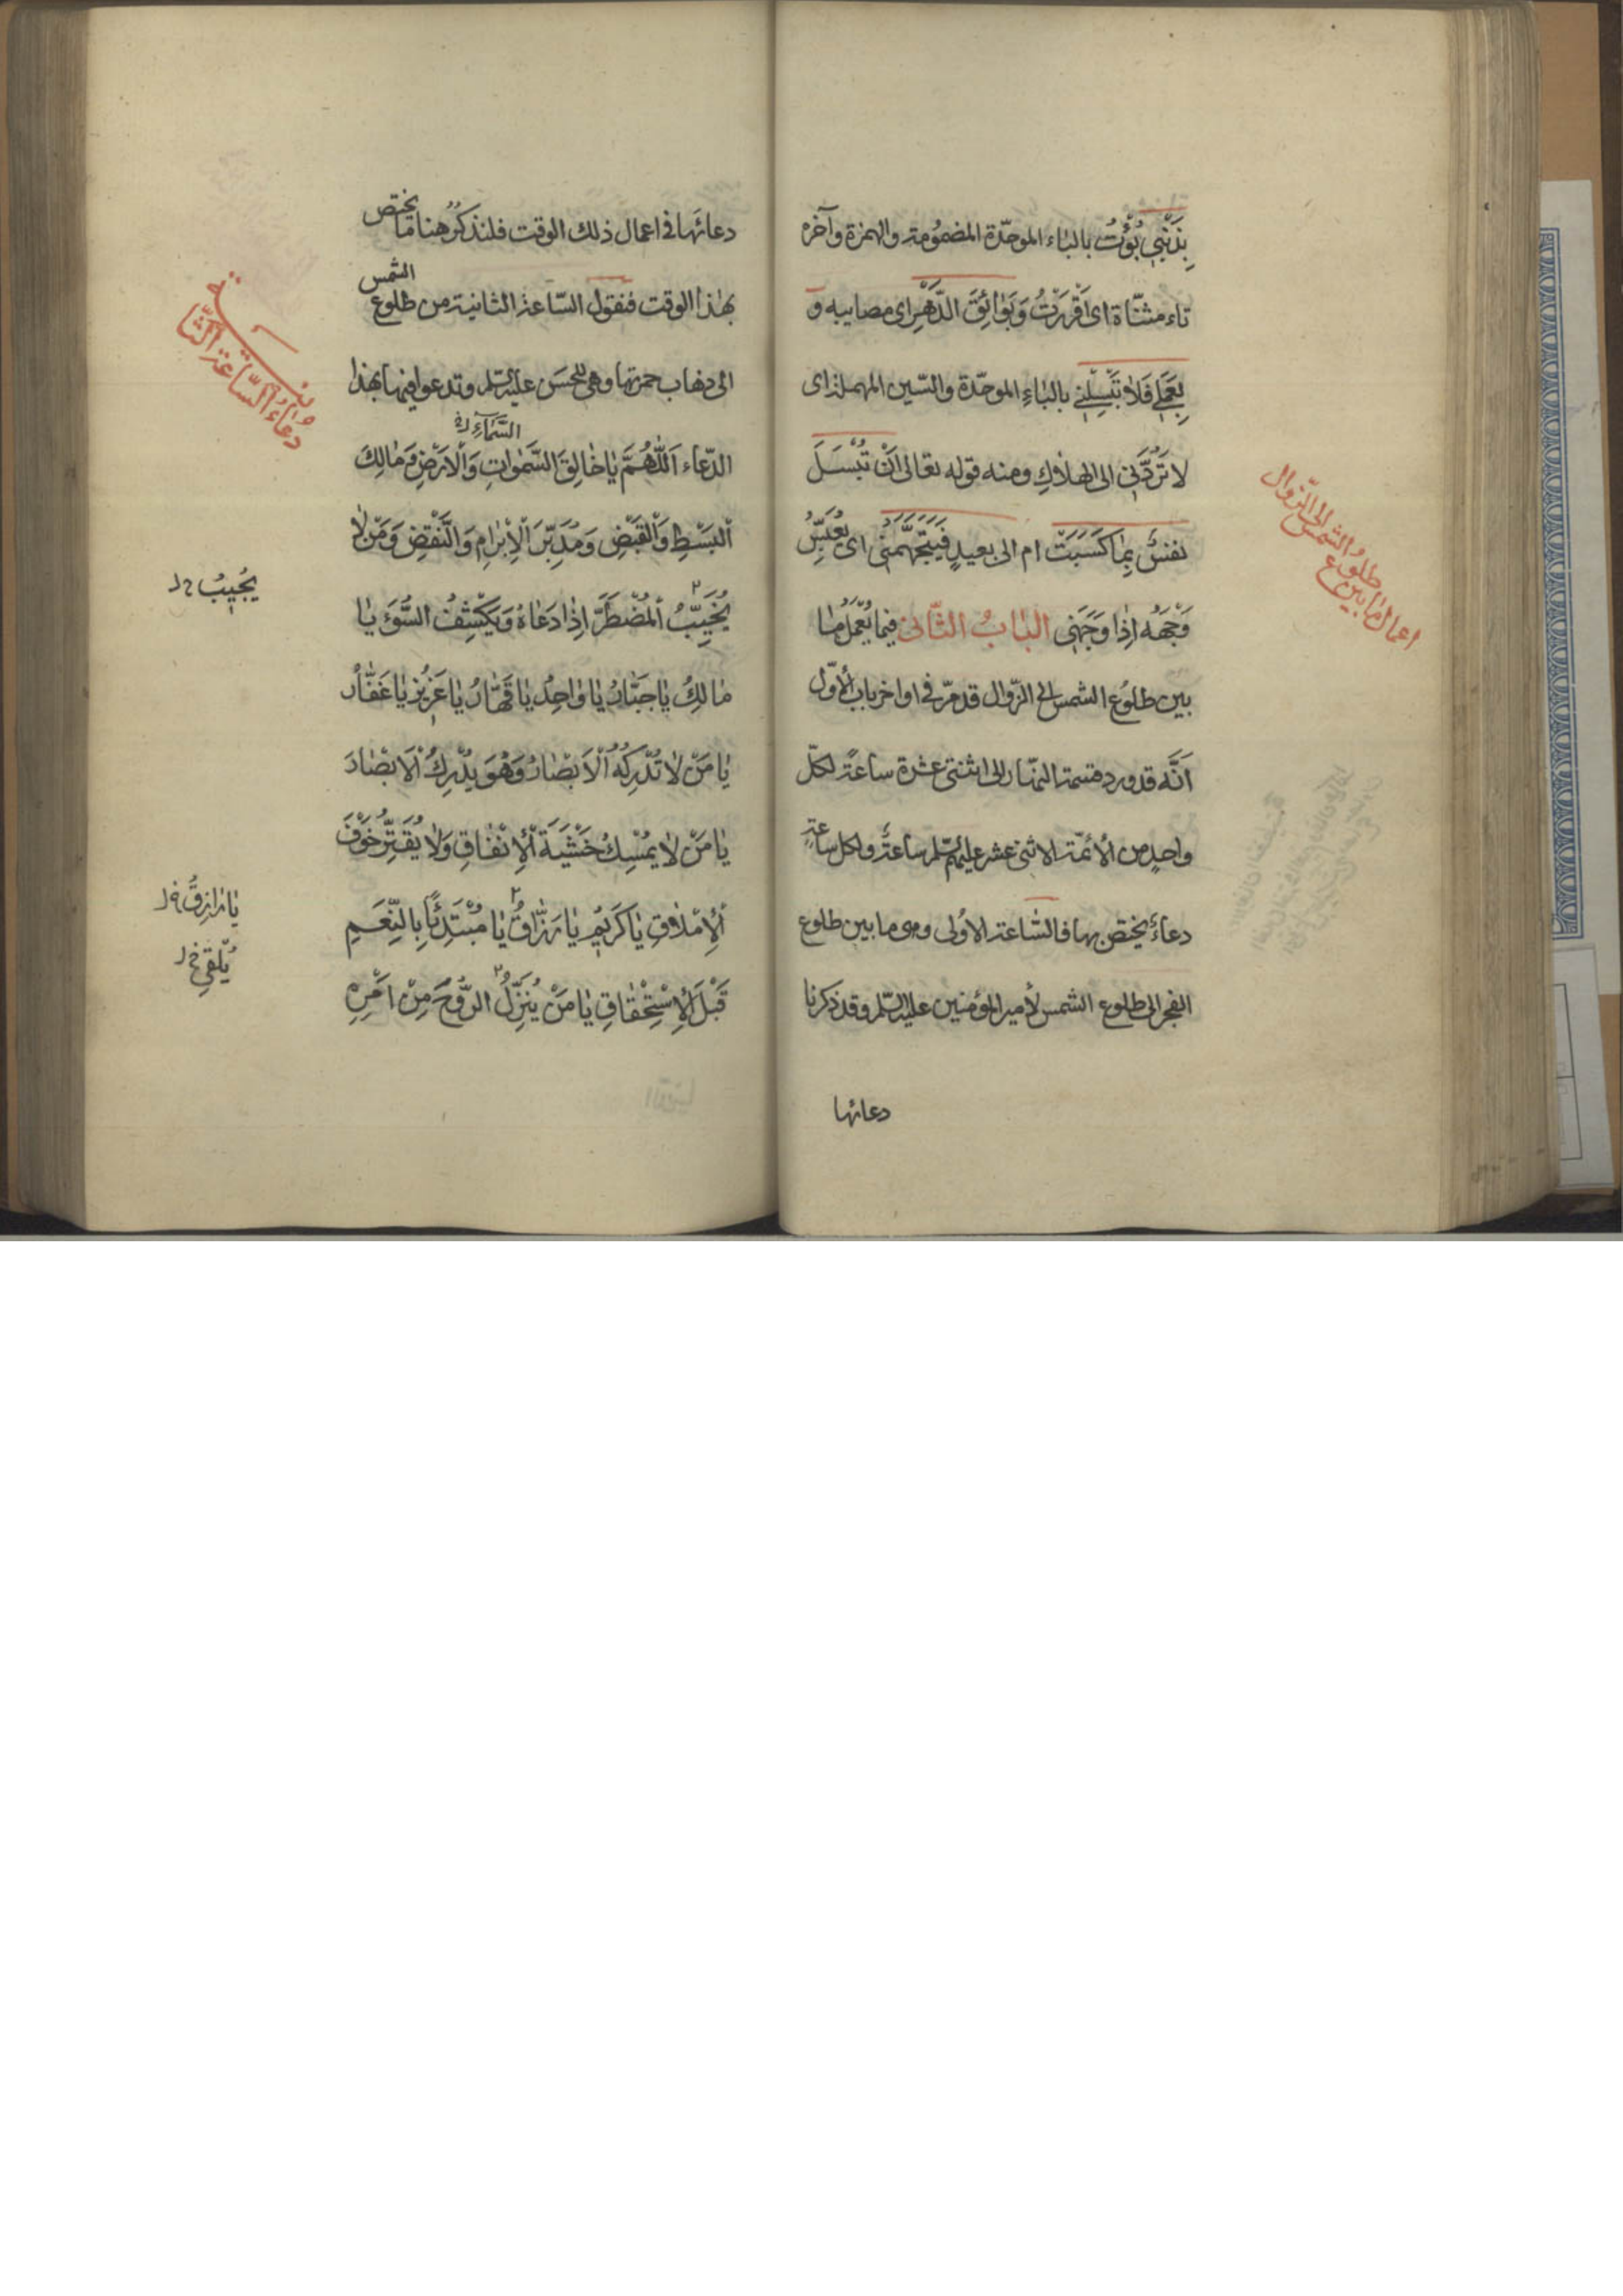 بِذَنْبِي بُؤْتُ بالباء الموحّدة المضمُومة والهمزة وآخره
تاء مثنّاة اى اَقْرَرْتُ وَبَوٰائِقَ الدَّهْرِ اى مصايبه و
بِعَمَلِي فَلاٰ تَبْسِلْنِي بالبٰاءِ الموحّدة والسّين المهملة اى
لا تَرُدَّنِي الى الهلاٰكِ ومنه قوله تعالى اَنْ تُبْسَلَ
نفسٌ بِمٰا كَسَبَتْ ام الى بعيدٍ فَيَتَجَهَّمَنِي اى يُعَبِّسُ
وَجْهَه اِذٰا وَجَهَنِي البٰابُ الثّانى فيما يُعْمَلُ مٰا
بين طلُوع الشمس الى الزّوال قد مرّ فى اواخر باب الأوّل
اَنَّه قد ورد قسمة النّهار الى اثنتى عشرة ساعةً لكلّ
واحدٍ من الأئمّة الاثنى عشر عليهم السّلم ساعةٌ ولكل ساعةٍ
دعاءٌ يختص بها فالسّاعة الاُولى وهى ما بين طلوع
الفجر الى طلوع الشمس لأمير المؤمنين عليه السّلم وقد ذكرنا
دعائها
اعمال مٰا بين طلوُع الشمس الى الزّوال
دعائَها فى اعمال ذلك الوقت فلنذكرُ هنا مٰا يختص
بهٰذا الوقت فنقول السّاعة الثانية من طلوع الشمس
الى ذهاب حمرتها وهى للحسَن عليه السّلم وتدعوا فيها بهذا
السَّمٰاءِ
الدّعاء اَللّٰهُمَّ يٰا خٰالِقَ السَّمٰوٰاتِ وَالْاَرْضِ وَمٰالِكَ
اَلْبَسْطِ وَالْقَبْضِ وَمُدَبِّرَ اَلْاِبْرٰامِ وَالنَّقْضِ وَمَنْ لٰا
يُخَيِّبُ اَلْمُضْطَرَّ اِذٰا دَعٰاهُ وَيَكْشِفُ السُّوَٓءَ يٰا
مٰالِكُ يٰا جَبّٰارُ يٰا وٰاحِدُ يٰا قَهّٰارُ يٰا عَزِيزُ يٰا غَفّٰارُ
يٰا مَنْ لاٰ تُدْرِكُهُ اَلْاَبْصٰارُ وَهُوَ يُدْرِكُ اَلْاَبْصٰارَ
يٰا مَنْ لاٰ يُمْسِكُ خَشْيَةَ اَلْاِنْفٰاقِ وَلاٰ يُقَتِّرُ خَوْفَ
اَلْاِمْلاٰقِ يٰا كَرِيمُ يٰا رَزّٰاقُ يٰا مُبْتَدِئاً بِالنِّعَمِ
قَبْلَ اَلْاِسْتِحْقٰاقِ يٰا مَنْ يُنَزِّلُ الرُّوحَ مِنْ اَمْرِهِ
دعٰاءُ السّاعة الثّانية
يُجِيبُ
يٰا رٰازِقُ
يُلْقِي